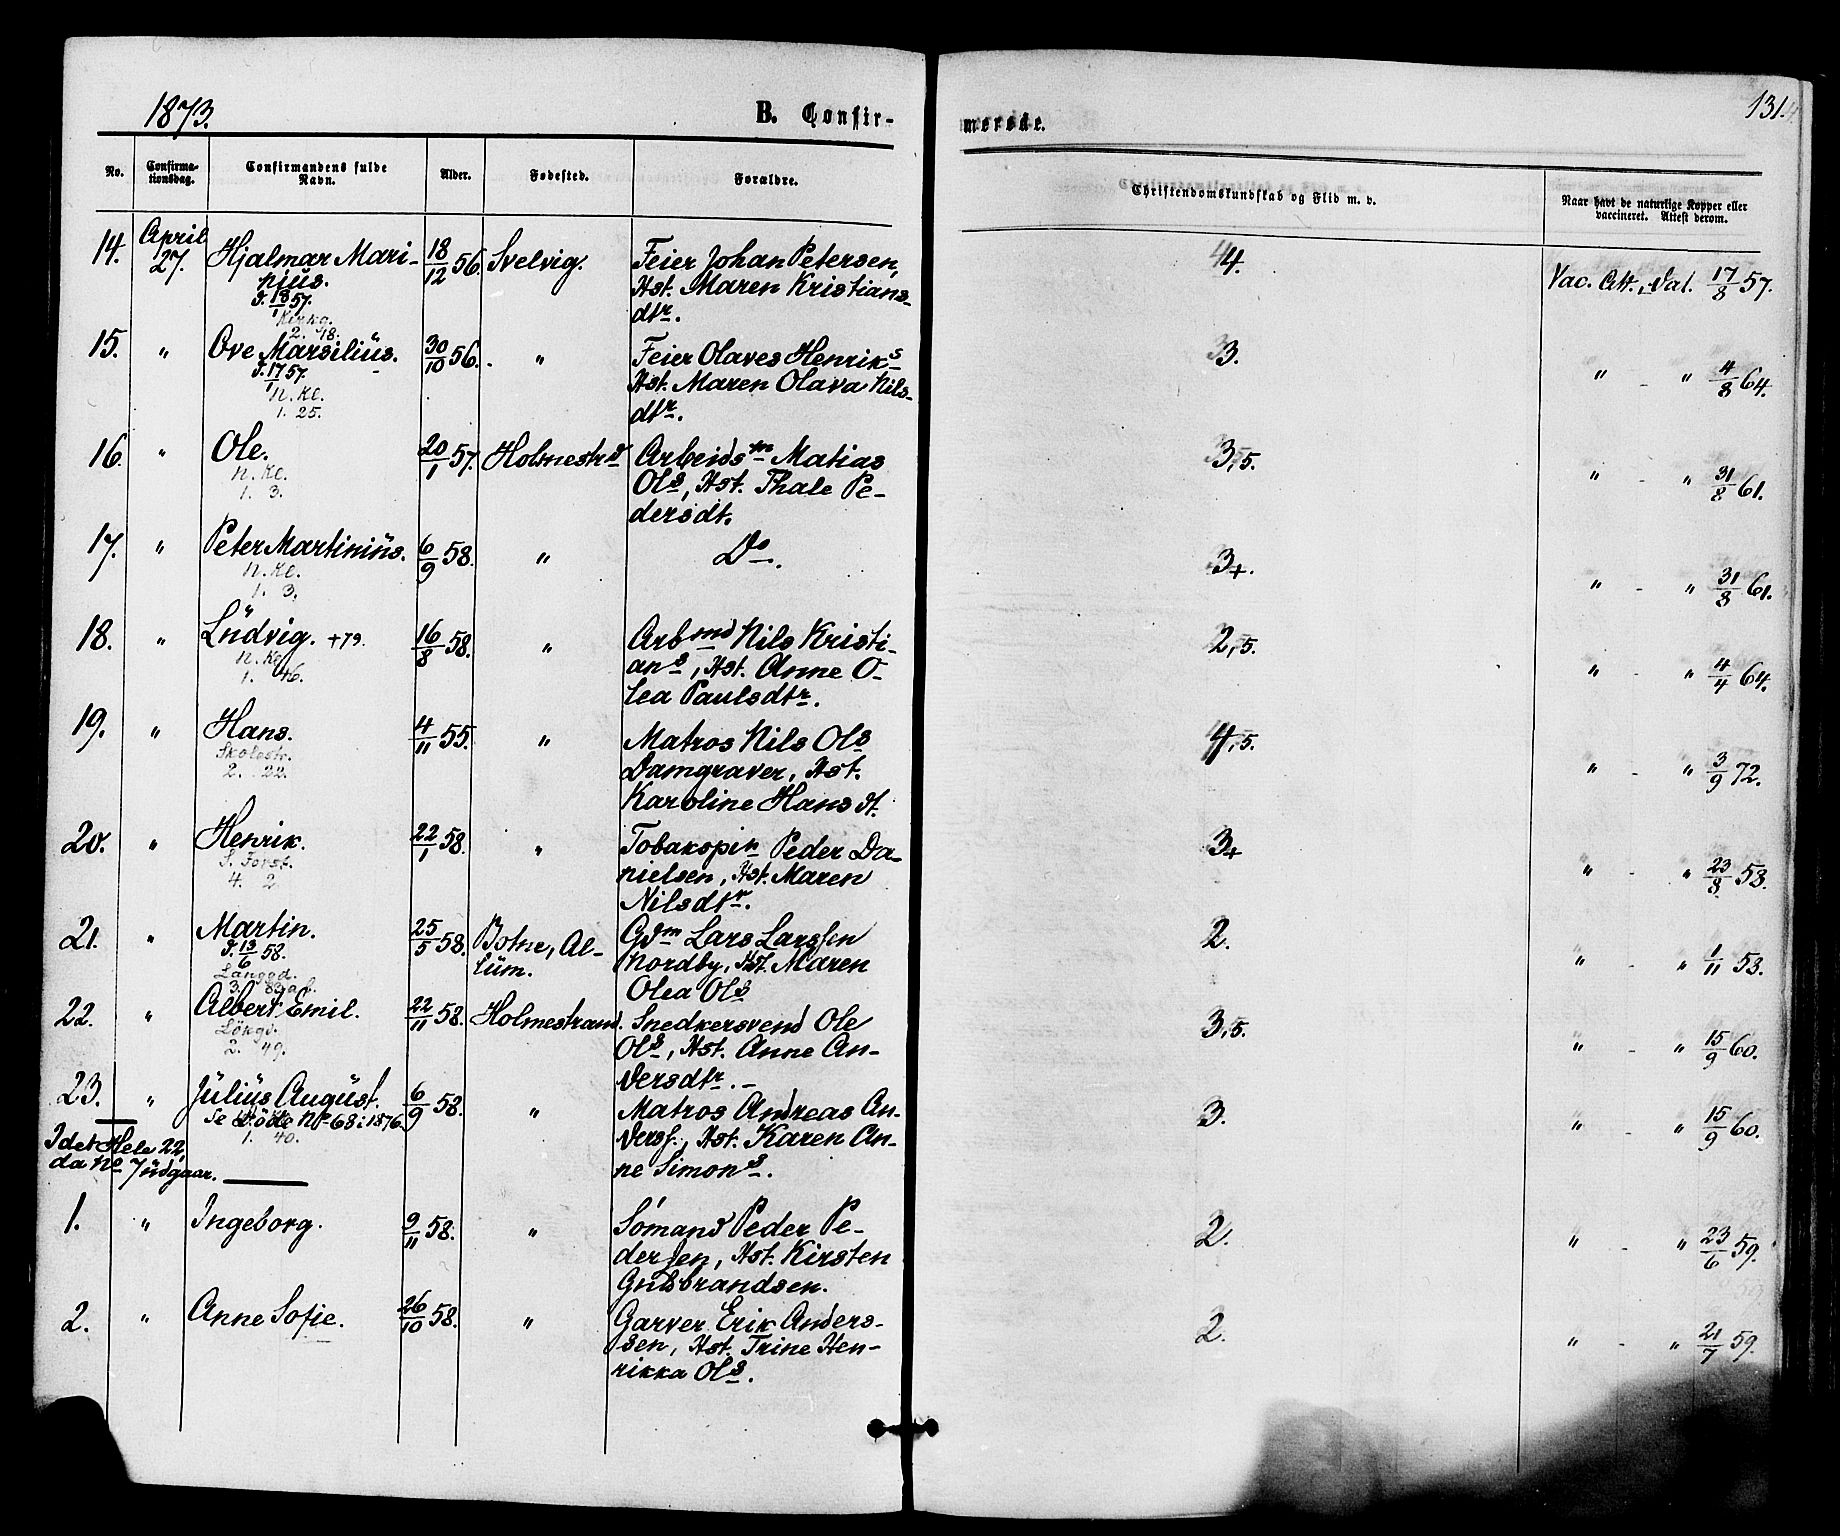 1873.
B. Confir-
merede.
131.
No.
Confirma-
tionsdag.
Confirmandens fulde
Navn.
Alder.
Fødested.
Forældre.
Christendomskundskab og Flid m. v.
Naar havt de naturlige Kopper eller
vaccineret. Attest derom.
14. April 27. Hjalmar Mari- 18/12 56. Svelvig. Feier Johan Petersen, 4. Vac. Att., Val. 17/8 57.
nius. Hst. Maren Kristians-
d. 18/1 57. dtr.
Kirkg.
2. 18.
15. " Ove Marsilius. 30/10 56. " Feier Olaves Henriks 3. " - " 4/8 64.
d. 17/1 57. Hst. Maren Olava Nils-
n. Kl. dtr.
1. 25.
16. " Ole. 20/1 57. Holmestrd Arbeidsm Matias 3,5. " - " 31/8 61.
n. Kl. Ols, Hst. Thale Pe-
1. 3. dersdt.
17. " Peter Martinius. 6/9 58. " Do. 3+. " - " 31/8 61.
n. Kl.
1. 3.
18. " Ludvig. +79. 16/8 58. " Arbmd Nils Kristi- 2,5. " - " 4/4 64.
n. Kl. ans, Hst. Anne O-
1. 46. lea Paulsdtr.
19. " Hans. 4/11 55. " Matros Nils Ols 4,5. " - " 3/9 72.
Skolestr. Damgraver, Hst.
2. 22. Karoline Hansdt.
20. " Henrik. 22/1 58. " Tobakspin Peder Da- 3+ " - " 23/8 58.
nielsen, Hst. Maren
4. 2. Nilsdtr.
21. " Martin. 25/5 58. Botne, Al- Gdm Lars Larssen 2. " - " 1/11 58.
d. 13/6 58. lum. Nordby, Hst. Maren
Langgd. Olea Ols
3. 83 a.b.
22. " Albert Emil. 22/11 58. Holmestrand. Snedkersvend Ole 3,5. " - " 15/9 60.
Ols, Hst. Anne An-
2. 49. dersdtr. -
23. " Julius August. 6/9 58. " Matros Andreas An- 3. " - " 15/9 60.
Se Døde No 68 i 1876. derss., Hst. Karen An-
1. 40. ne Simons.
I det Hele 22,
da No 7 udgaar.
1. " Ingeborg. 9/11 58. " Sømand Peder Pe- 2. " - " 23/6 59.
dersen, Hst. Kirsten
Gudbrandsen.
2. " Anne Sofie. 26/10 58. " Garver Erik Anders- 2. " - " 21/7 59.
sen, Hst. Trine Hen-
rikka Ols.